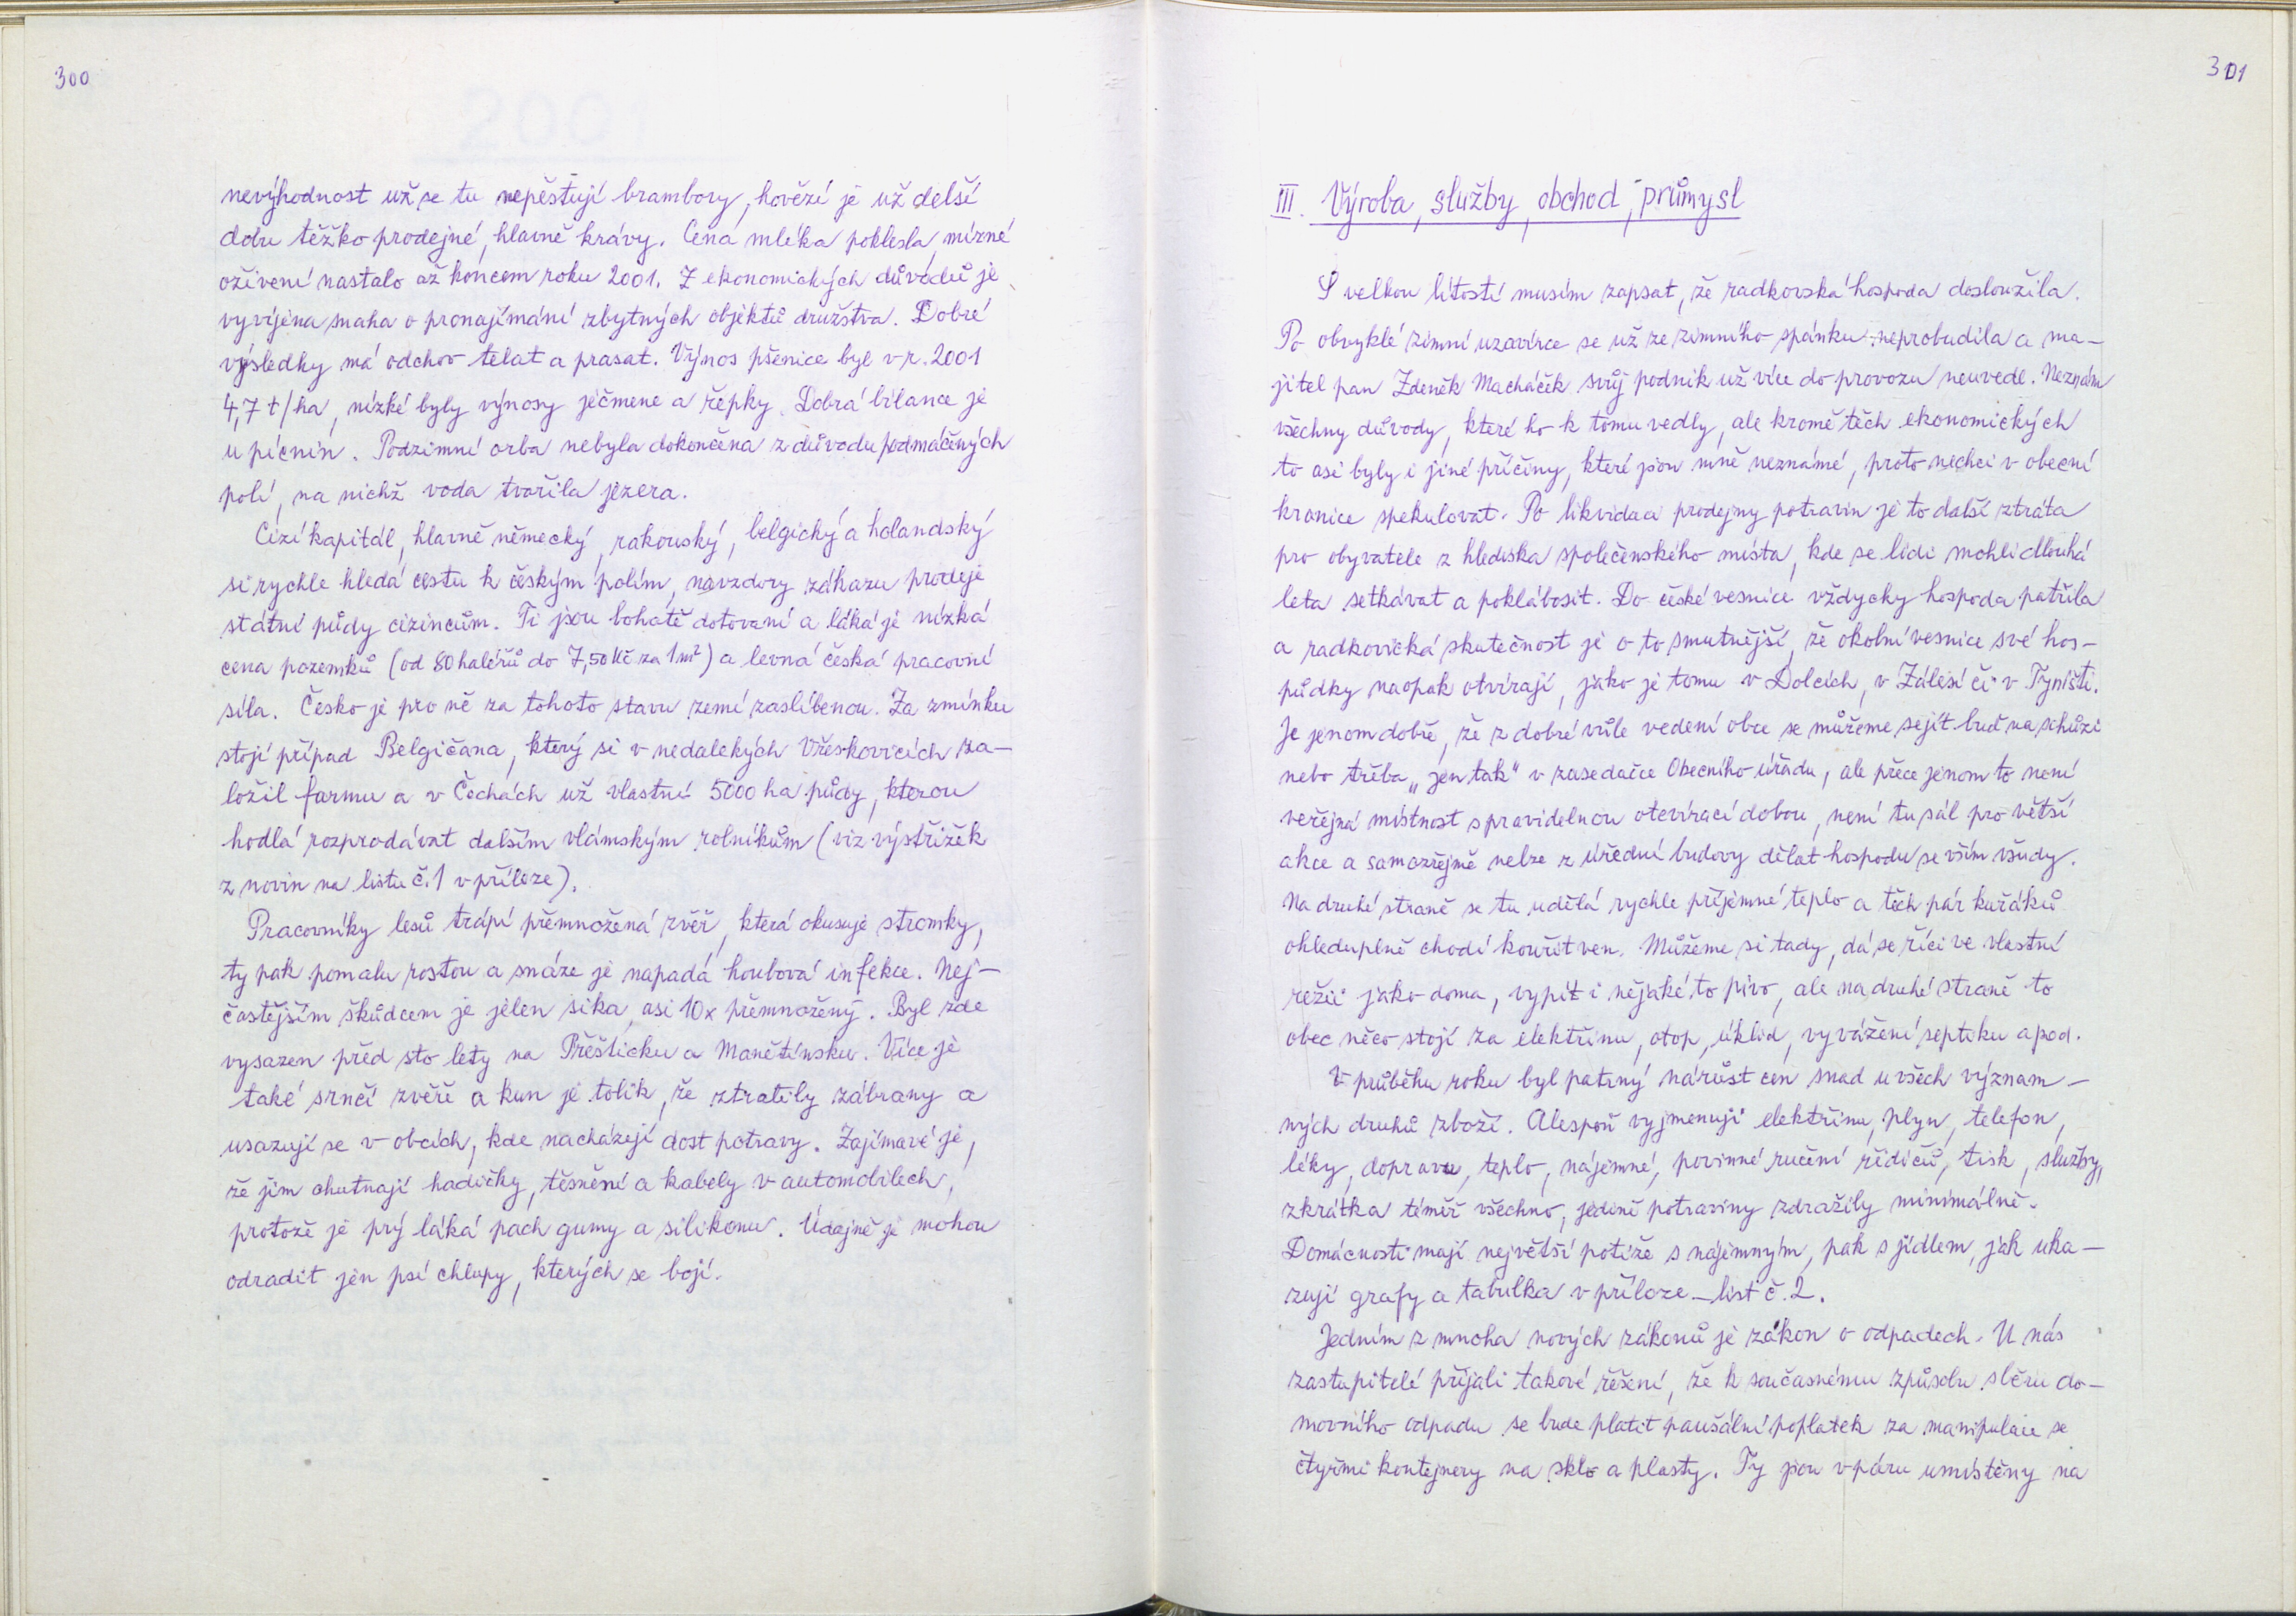 300
nevýhodnost už se tu nepěstují brambory, hovězí je už delší
dobu těžko prodejné, hlavně krávy. Cena mléka poklesla, mírné
oživení nastalo až koncem roku 2001. Z ekonomických důvodů je
vyvíjena snaha o pronajímání zbytných objektů družstva. Dobré
výsledky má odchov telat a prasat. Výnos pšenice byl v r. 2001
4,7 t/ha, nízké byly výnosy ječmene a řepky. Dobrá bilance je
u pícnin. Podzimní orba nebyla dokončena z důvodu podmáčených
polí, na nichž voda tvořila jezera.
Cizí kapitál, hlavně německý, rakouský, belgický a holandský
si rychle hledá cestu k českým polím, navzdory zákazu prodeje
státní půdy cizincům. Ti jsou bohatě dotovaní a láká je nízká
cena pozemků (od 80 haléřů do 7,50 Kč za 1 m²) a levná česká pracovní
síla. Česko je pro ně za tohoto stavu zemí zaslíbenou. Za zmínku
stojí případ Belgičana, který si v nedalekých Vřeskovicích za-
ložil farmu a v Čechách už vlastní 5000 ha půdy, kterou
hodlá rozprodávat dalším vlámským rolníkům (viz výstřižek
z novin na listu č. 1 v příloze).
Pracovníky lesů trápí přemnožená zvěř, která okusuje stromky,
ty pak pomalu rostou a snáze je napadá houbová infekce. Nej-
častějším škůdcem je jelen sika, asi 10x přemnožený. Byl zde
vysazen před sto lety na Přešticku a Manětínsku. Více je
také srnčí zvěře a kun je tolik, že ztratily zábrany a
usazují se v obcích, kde nacházejí dost potravy. Zajímavé je,
že jim chutnají hadičky, těsnění a kabely v automobilech,
protože je prý láká pach gumy a silikonu. Údajně je mohou
odradit jen psí chlupy, kterých se bojí.
301
III. Výroba, služby, obchod, průmysl
S velkou lítostí musím zapsat, že radkovská hospoda dosloužila.
Po obvyklé zimní uzavírce se už ze zimního spánku neprobudila a ma-
jitel pan Zdeněk Macháček svůj podnik už více do provozu neuvedl. Neznám
všechny důvody, které ho k tomu vedly, ale kromě těch ekonomických
to asi byly i jiné příčiny, které jsou mně neznámé, proto nechci v obecní
kronice spekulovat. Po likvidaci prodejny potravin je to další ztráta
pro obyvatele z hlediska společenského místa, kde se lidi mohli dlouhá
leta setkávat a poklábosit. Do české vesnice vždycky hospoda patřila
a radkovická skutečnost je o to smutnější, že okolní vesnice své hos-
půdky naopak otvírají, jako je tomu v Dolcích, v Zálesí či v Týništi.
Je jenom dobře, že z dobré vůle vedení obce se můžeme sejít buď na schůzi
nebo třeba „jen tak“ v zasedačce Obecního úřadu, ale přece jenom to není
veřejná místnost s pravidelnou otevírací dobou, není tu sál pro větší
akce a samozřejmě nelze z úřední budovy dělat hospodu se vším všudy.
Na druhé straně se tu udělá rychle příjemné teplo a těch pár kuřáků
ohleduplně chodí kouřit ven. Můžeme si tady, dá se říci ve vlastní
režii jako doma, vypít i nějaké to pivo, ale na druhé straně to
obec něco stojí za elektřinu, otop, úklid, vyvážení septiku apod.
V průběhu roku byl patrný nárůst cen snad u všech význam-
ných druhů zboží. Alespoň vyjmenuji elektřinu, plyn, telefon,
léky, dopravu, teplo, nájemné, povinné ručení řidičů, tisk, služby,
zkrátka téměř všechno, jedině potraviny zdražily minimálně.
Domácnosti mají největší potíže s nájemným, pak s jídlem, jak uka-
zují grafy a tabulka v příloze - list č. 2.
Jedním z mnoha nových zákonů je zákon o odpadech. U nás
zastupitelé přijali takové řešení, že k současnému způsobu sběru do-
movního odpadu se bude platit paušální poplatek za manipulaci se
čtyřmi kontejnery na sklo a plasty. Ty jsou v páru umístěny na